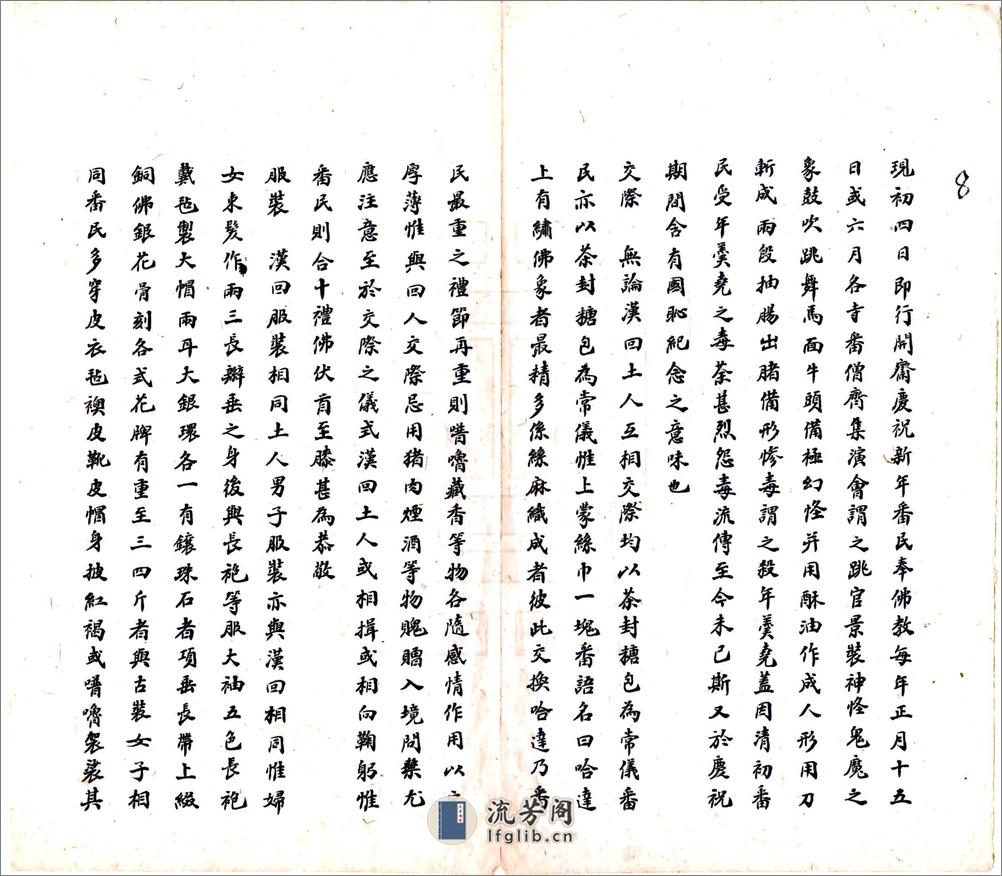 8
現初四日即行開齋慶祝新年番民奉佛教每年正月十五
日或六月各寺番僧齊集演會謂之跳官景裝神怪鬼魔之
象鼓吹跳舞馬面牛頭備極幻怪并用酥油作成人形用刀
斬成兩段抽腸出賭備形慘毒謂之殺年羹堯蓋因清初番
民受年羹堯之毒荼甚烈怨毒流傳至今未已斯又於慶祝
期間含有國恥紀念之意味也
交際　無論漢回土人互相交際均以茶封糖包為常儀番
民亦以茶封糖包為常儀惟上蒙絲巾一塊番語名曰哈達
上有繡佛象者最精多係絲麻織成者彼此交換哈達乃番
民最重之禮節再重則噜嚕藏香等物各隨感情作用以
厚薄惟與回人交際忌用猪肉煙酒等物餽贈入境問禁尤
應注意至於交際之儀式漢回土人或相揖或相向鞠躬惟
番民則合十禮佛伏首至膝甚為恭敬
服裝　漢回服裝相同土人男子服裝亦與漢回相同惟婦
女束髮作兩三長辮垂之身後與長袍等服大袖五色長袍
戴毡製大帽兩耳大銀環各一有鑲珠石者項垂長帶上綴
銅佛銀花骨刻各式花牌有重至三四斤者與古裝女子相
同番民多穿皮衣毡襖皮靴皮帽身披紅褐或噜嚕袈裟其
流芳阁
lfglib.cn